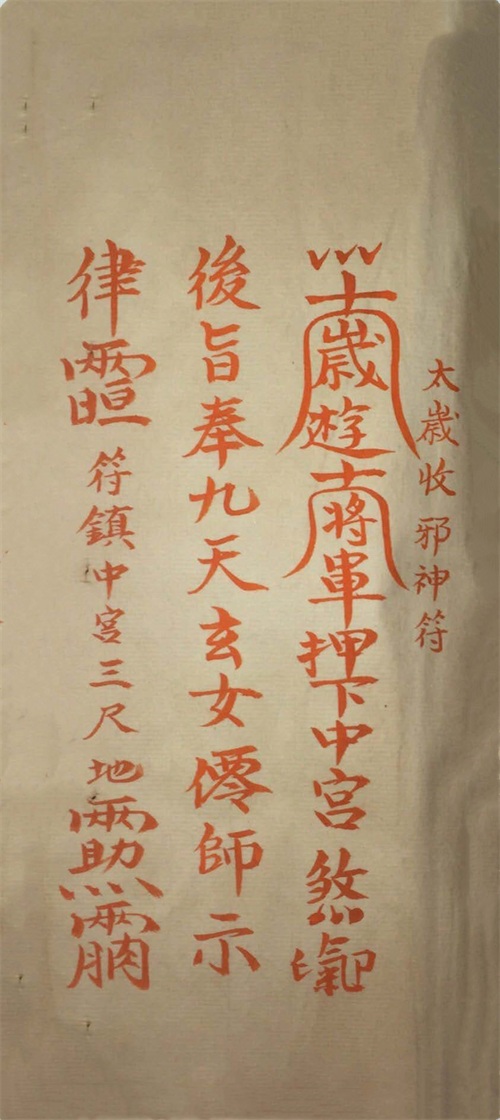 太歲收邪神符
士歲遊士將軍押下中宮煞
後旨奉九天玄女僊師示
律 符鎮中宮三尺地